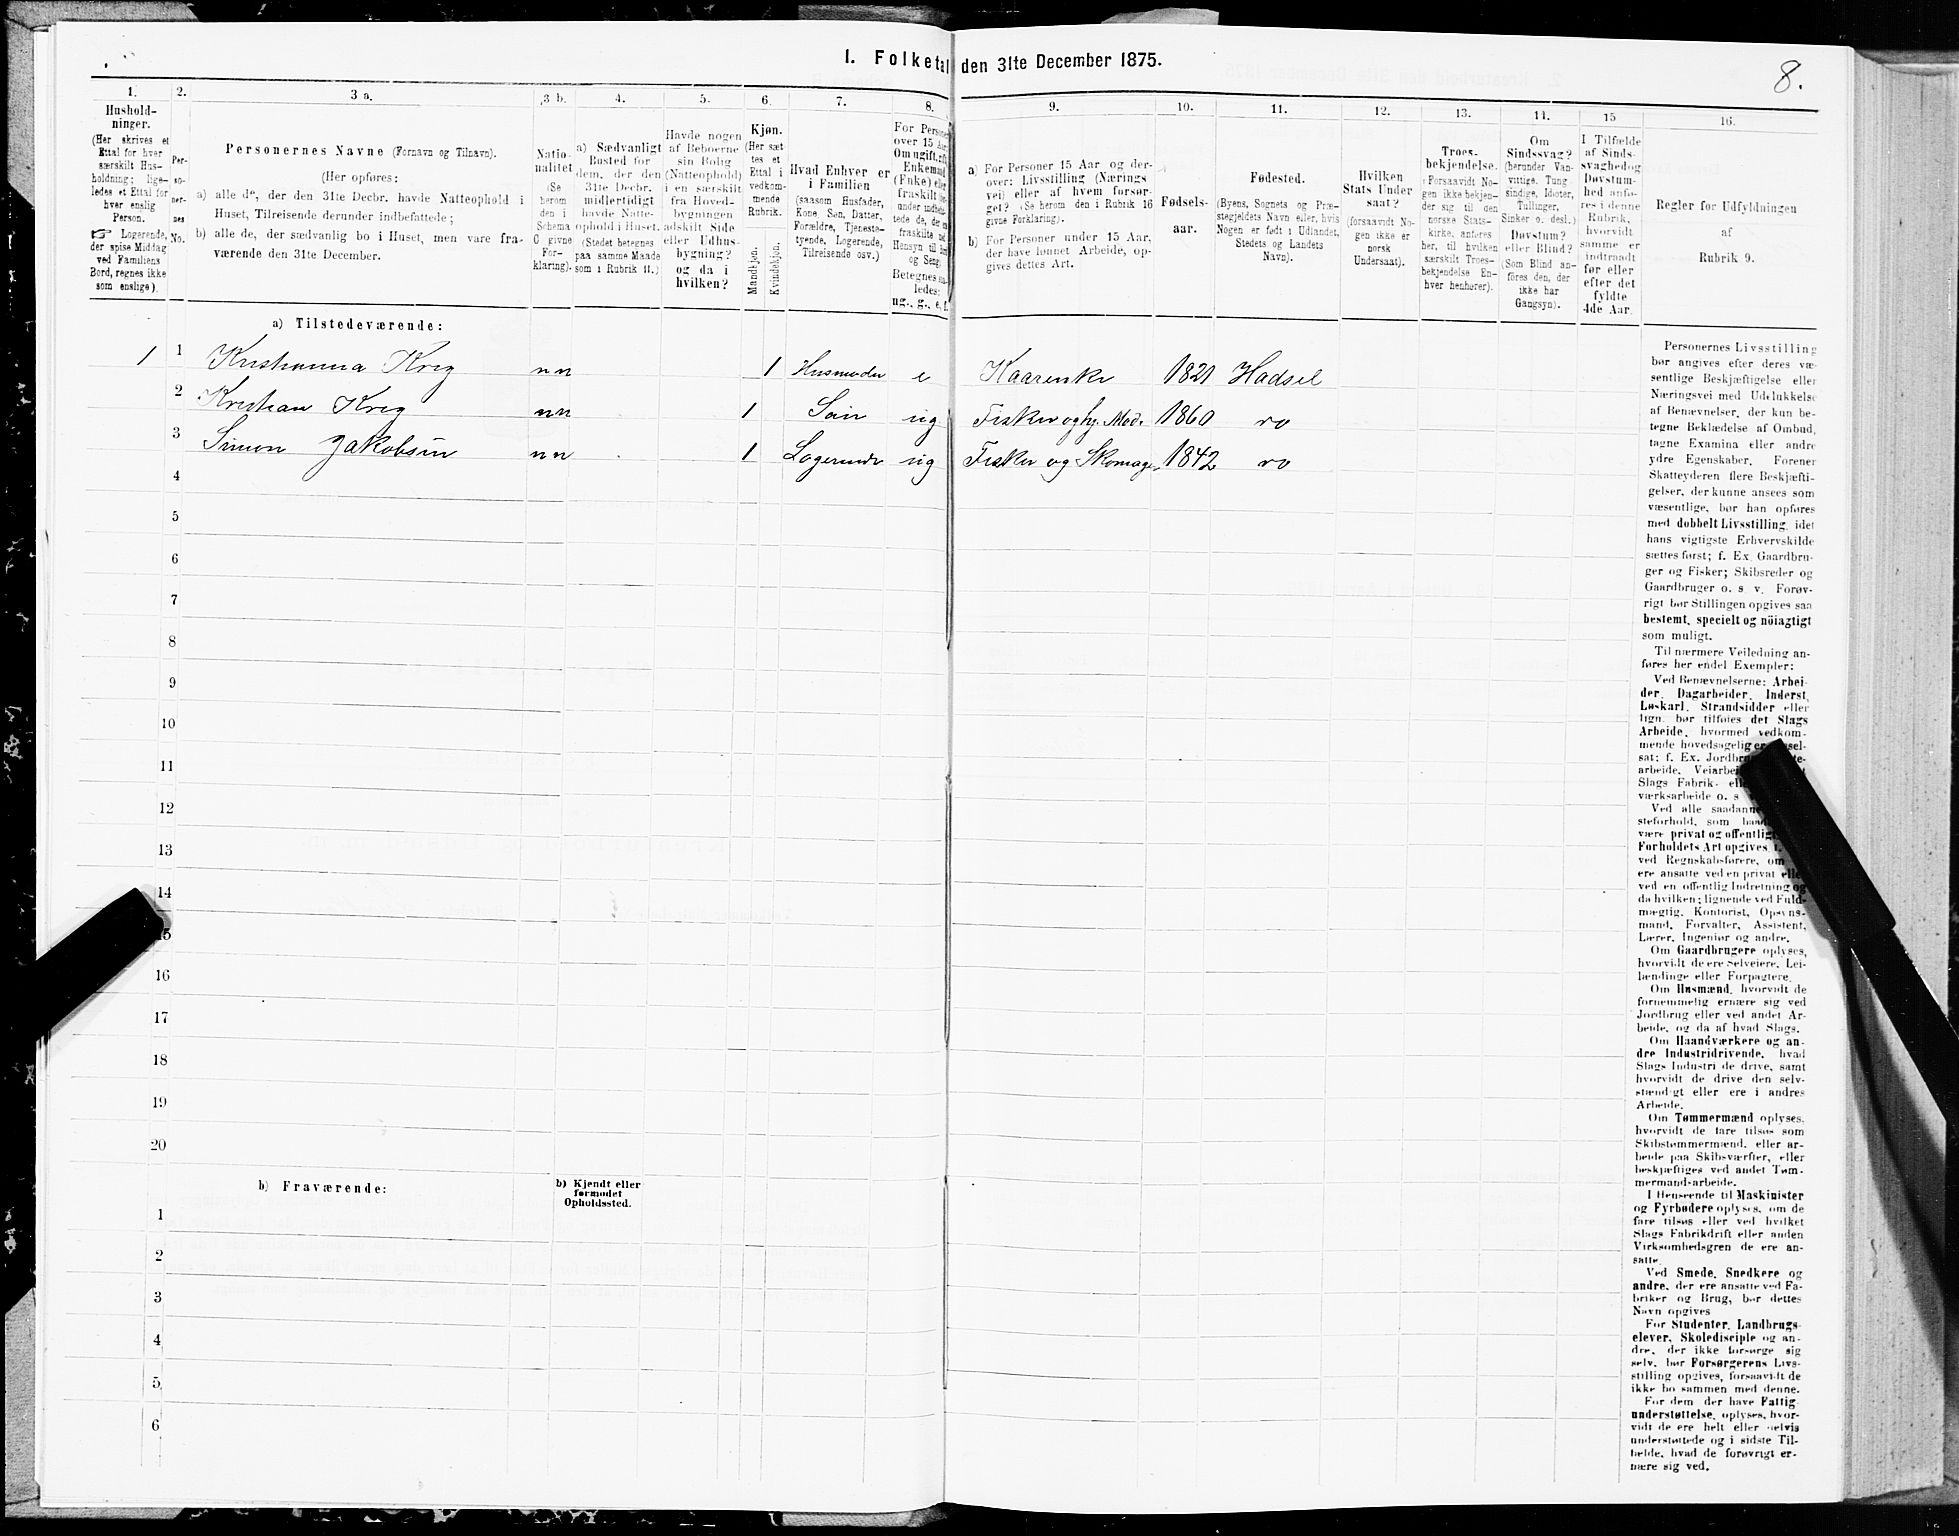 1. Folketal den 31te December 1875.
8.
1.
Hushold-
ninger.
(Her skrives et
Ettal for hver
særskilt Hus-
holdning; lige-
ledes et Ettal for
hver enslig
Person.
☞ Logerende,
der spise Middag
ved Familiens
Bord, regnes ikke
som enslige).
2.
Per-
so-
ner-
nes
No.
3 a.
Personernes Navne (Fornavn og Tilnavn).
(Her opføres:
a) alle de, der den 31te Decbr. havde Natteophold i
Huset, Tilreisende derunder indbefattede;
b) alle de, der sædvanlig bo i Huset, men vare fra-
værende den 31te December.
3 b.
Natio-
nalitet
(Se
herom
den i
Schema
C givne
For-
klaring).
4.
a) Sædvanligt
Bosted for
dem, der den
31te Decbr.
midlertidigt
havde Natte-
ophold i Huset.
(Stedet betegnes
paa samme Maade
som i Rubrik 11.)
5.
Havde nogen
af Beboerne
sin Bolig
(Natteophold)
i en særskilt
fra Hoved-
bygningen
adskilt Side-
eller Udhus-
bygning?
og da i
hvilken?
6.
Kjøn.
(Her sæt-
tes et
Ettal i
vedkom-
mende
Rubrik.
Mandkjøn.
Kvindekjøn.
7.
Hvad Enhver er
i Familien
(saasom Husfader,
Kone, Søn, Datter,
Forældre, Tjeneste-
tyende, Logerende,
Tilreisende osv.)
8.
For Personer
over 15 Aar
Om ugift, gift,
Enkemand
(Enke) eller
fraskilt
Betegnes saa-
ledes:
ug., g., e., f.
9.
a) For Personer 15 Aar og der-
over: Livsstilling (Nærings-
vei) eller af hvem forsør-
get? (Se herom den i Rubrik 16
givne Forklaring).
b) For Personer under 15 Aar,
der have lønnet Arbeide, op-
gives dettes Art.
10.
Fødsels-
aar.
11.
Fødested.
(Byens, Sognets og Præ-
stegjeldets Navn eller, hvis
Nogen er født i Udlandet,
Stedets og Landets
Navn).
12.
Hvilken
Stats Under-
saat?
(forsaavidt No-
gen ikke er
norsk
Undersaat).
13.
Troes-
bekjendelse.
(Forsaavidt No-
gen ikke bekjen-
der sig til den
norske Stats-
kirke, anføres
her, til hvilken
særskilt Troes-
bekjendelse En-
hver henhører).
14.
Om
Sindssvag?
(herunder Van-
vittige, Tung-
sindige, Idioter,
Tullinger,
Sinker o. desl.)
Døvstum?
eller Blind?
(Som Blind an-
føres den, der
ikke har
Gangsyn).
15
I Tilfælde
af Sinds-
svaghed og
Døvstum-
hed anfø-
res i denne
Rubrik,
hvorvidt
samme er
indtraadt
før eller
efter det
fyldte
4de Aar.
16.
Regler for Udfyldningen
af
Rubrik 9.
a) Tilstedeværende:
1 1 Kristianna Krig nn 1 Husmoder e Kaarenke 1821 Hadsel
2 Kristian Krig nn 1 Søn ug Fisker og hj. Mod. 1860 "
3 Simon Jakobsen nn 1 Logerende ug Fisker og Skomager 1842 "
4
5
6
7
8
9
10
11
12
13
14
15
16
17
18
19
20
b) Fraværende:
b) Kjendt eller
formodet
Opholdssted.
1
2
3
4
5
6
Personernes Livsstilling
bør angives efter deres væ-
sentlige Beskjæftigelse eller
Næringsvei med Udelukkelse
af Benævnelser, der kun be-
tegne Beklædelse af Ombud,
tagne Examina eller andre
ydre Egenskaber. Forener
Skatteyderen flere Beskjæfti-
gelser, der kunne ansees som
væsentlige, bør han opføres
med dobbelt Livsstilling, idet
hans vigtigste Erhvervskilde
sættes først; f. Ex. Gaardbru-
ger og Fisker; Skibsreder og
Gaardbruger o. s v. Forøv-
rigt bør Stillingen opgives saa
bestemt, specielt og nöiagtigt
som muligt.
Til nærmere Veiledning an-
føres her endel Exempler:
Ved Benævnelserne: Arbei-
der, Dagarbeider, Inderst,
Løskarl, Strandsidder eller
lign. bør tilføies det Slags
Arbeide, hvormed vedkom-
mende hovedsagelig er
sat; f. Ex.
arbeide,
Slags Fabrik-
værksarbeide o. s
Ved alle saadanne
steforhold, som
være privat og offentlig
Forholdets Art opgives,
ved Regnskabsførere, om
ere ansatte ved en privat eller
ved en offentlig Indretning og
da hvilken; lignende ved Fuld-
mægtig, Kontorist, Opsyns-
mand, Forvalter, Assistent,
Lærer, Ingeniør og andre.
Om Gaardbrugere oplyses,
hvorvidt de ere Selveiere, Lei-
lændinge eller Forpagtere.
Om Husmænd, hvorvidt de
fornemmelig ernære sig ved
Jordbrug eller ved andet Ar-
beide, og da af hvad Slags.
Om Haandværkere og an-
dre Industridrivende, hvad
Slags Industri de drive, samt
hvorvidt de drive den selv-
stændigt eller ere i andres
Arbeide.
Om Tømmermænd oplyses,
hvorvidt de fare tilsøs som
Skibstømmermænd, eller ar-
beide paa Skibsværfter, eller
beskjæftiges ved andet Tøm-
mermandsarbeide.
I Henseende til Maskinister
og Fyrbødere oplyses, om de
fare tilsøs eller ved hvilket
Slags Fabrikdrift eller anden
Virksomhedsgren de ere an-
satte.
Ved Smede, Snedkere og
andre, der ere ansatte ved Fa-
briker og Brug, bør dettes
Navn opgives
For Studenter, Landbrugs-
elever, Skoledisciple og an-
dre, der ikke forsørge sig
selv, bør Forsørgerens Livs-
stilling opgives, forsaavidt de
ikke bo sammen med denne.
For dem der have Fattig-
understøttelse, oplyses, hvor-
vidt de ere helt eller delvis
understøttede og i sidste Til-
fælde, hvad de forøvrigt er-
nære sig ved.